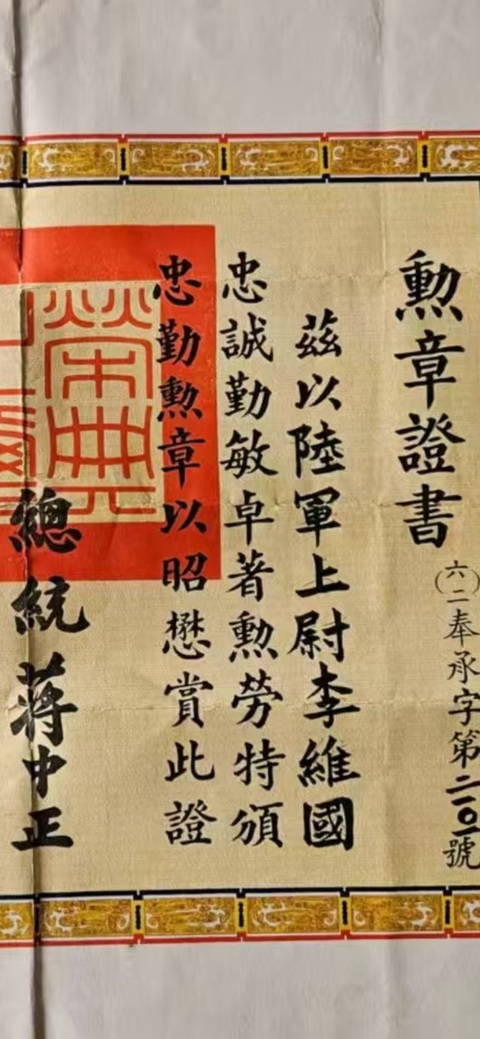 勲章證書
(六二)奉承字第二一〇一號
茲以陸軍上尉李維國
忠誠勤敏卓著勲勞特頒
忠勤勲章以昭懋賞此證
總統蔣中正
榮典